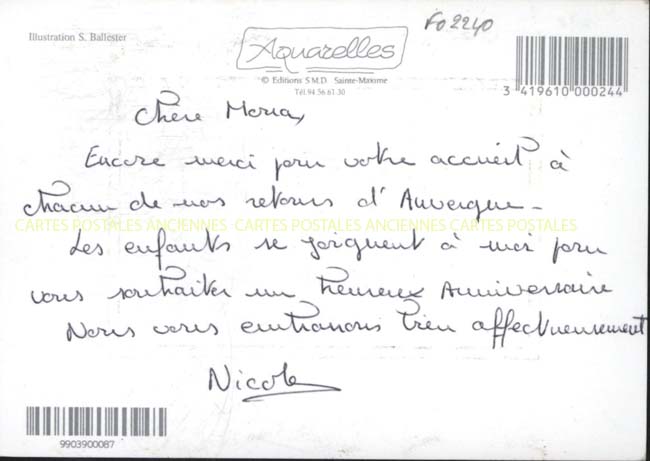 Illustration S. Ballester
Aquarelles
© Editions S.M.D. Sainte-Maxime
Tél. 94 56 61 30
F02240
3 419610 000244
Chère Maria,
Encore merci pour votre accueil à
chacun de nos retours d'Auvergne -
CARTES POSTALES ANCIENNES CARTES POSTALES ANCIENNES CARTES POSTALES
Les enfants se joignent à moi pour
vous souhaiter un heureux Anniversaire
Nous vous embrassons bien affectueusement
Nicole
9903900087